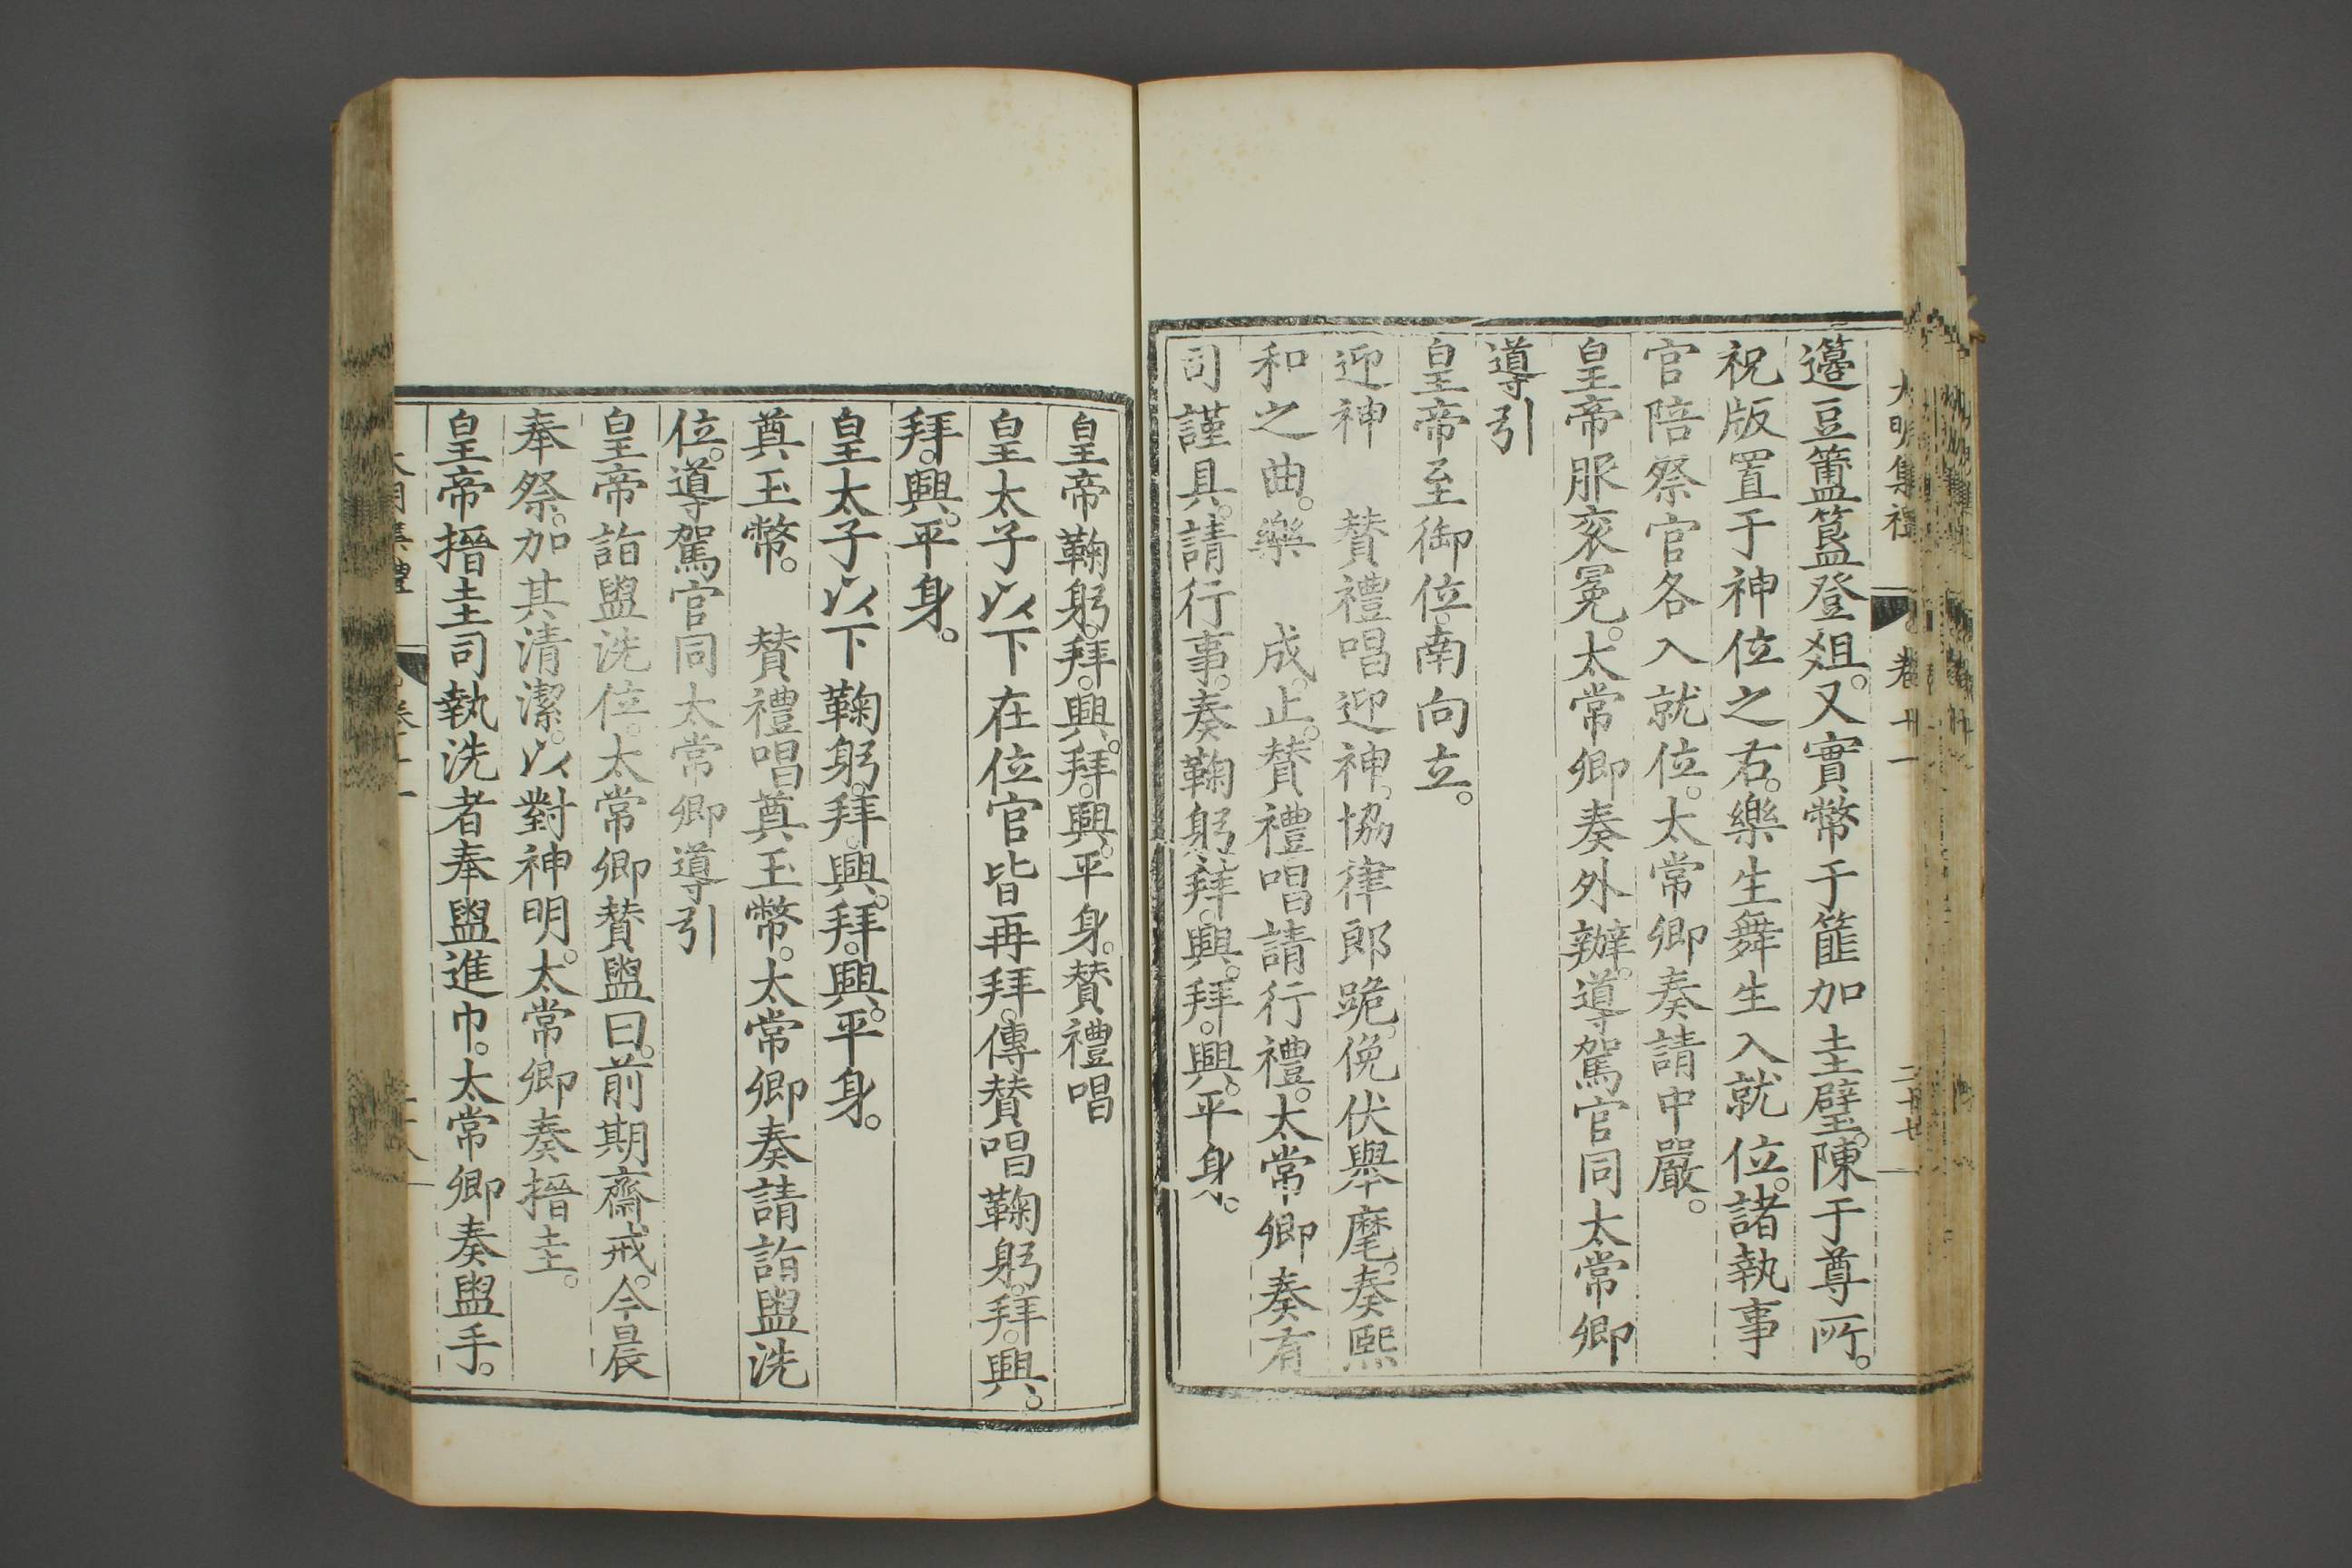 大明集禮 卷十一 二十七
籩豆簠簋登爼。又實幣于篚加圭璧。陳于尊所。
祝版置于神位之右。樂生舞生入就位。諸執事
官陪祭官各入就位。太常卿奏請中嚴。
皇帝服衮冕。太常卿奏外辦。導駕官同太常卿
導引
皇帝至御位。南向立。
迎神 賛禮唱迎神。協律郎跪。俛伏舉麾。奏熙
和之曲。樂 成。止。賛禮唱請行禮。太常卿奏有
司謹具。請行事。奏鞠躬。拜。興。拜。興。平身。
皇帝鞠躬。拜。興。拜。興。平身。賛禮唱
皇太子以下在位官皆再拜。傳賛唱鞠躬。拜。興。
拜。興。平身。
皇太子以下鞠躬。拜。興。拜。興。平身。
奠玉幣。 賛禮唱奠玉幣。太常卿奏請詣盥洗
位。導駕官同太常卿導引
皇帝詣盥洗位。太常卿賛盥曰。前期齋戒。今晨
奉祭。加其清潔。以對神明。太常卿奏搢圭。
皇帝搢圭司執洗者奉盥進巾。太常卿奏盥手。
大明集禮 卷十一 二十八